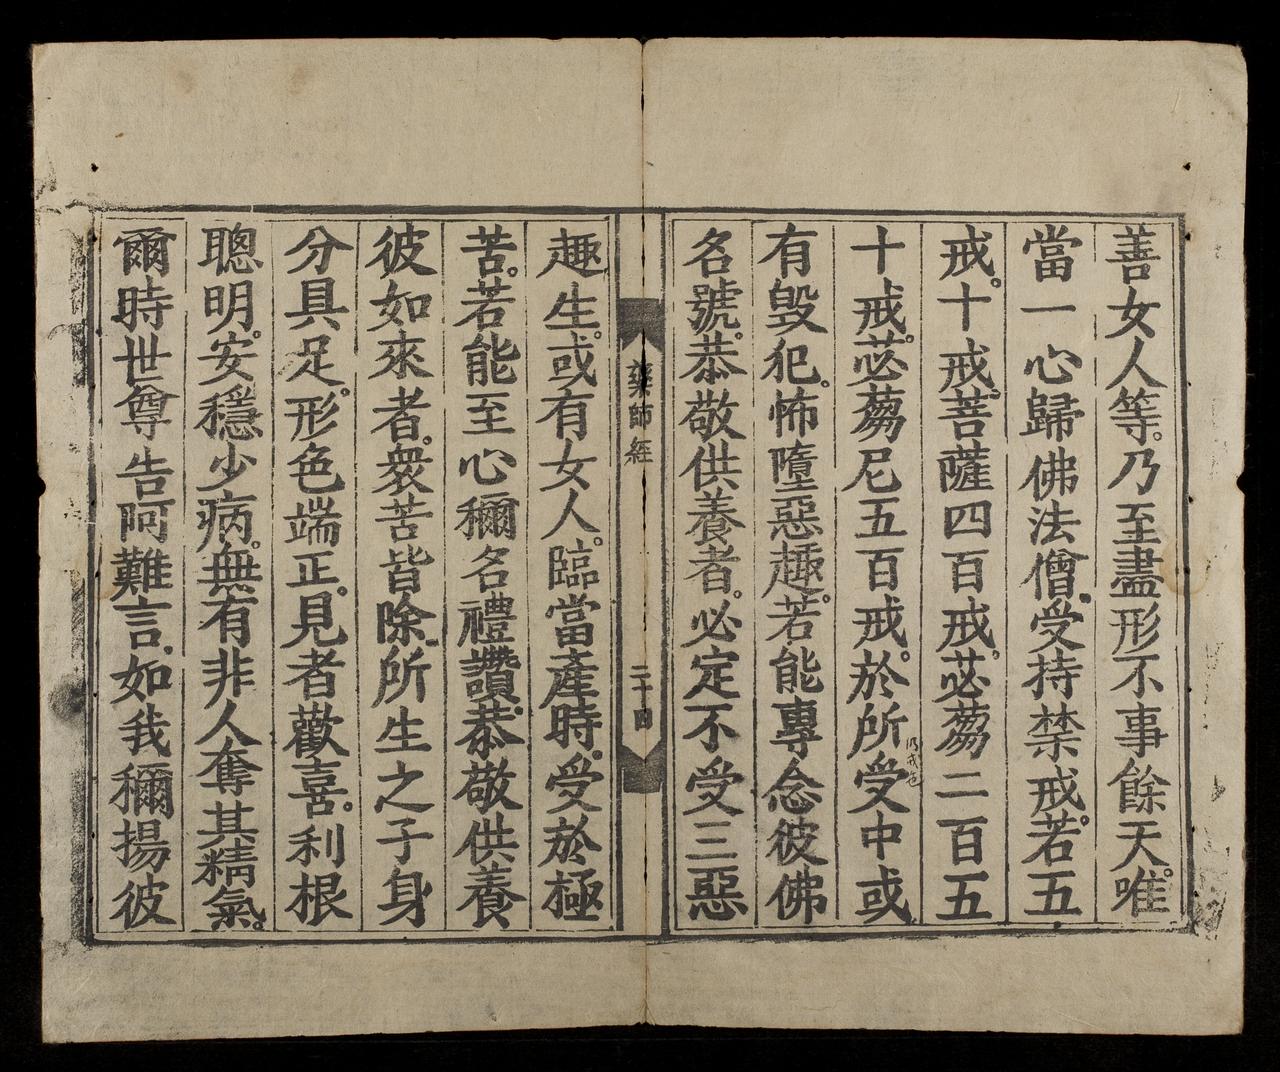 善女人等。乃至盡形不事餘天。唯
當一心歸佛法僧。受持禁戒。若五
戒。十戒。菩薩四百戒。苾蒭二百五
十戒。苾蒭尼五百戒。於所受中或
有毀犯。怖墮惡趣。若能專念彼佛
名號。恭敬供養者。必定不受三惡
藥師經
二十四
趣生。或有女人。臨當產時。受於極
苦。若能至心稱名禮讚。恭敬供養
彼如來者。衆苦皆除。所生之子身
分具足。形色端正。見者歡喜。利根
聰明。安穩少病。無有非人奪其精氣。
爾時世尊告阿難言。如我稱揚彼